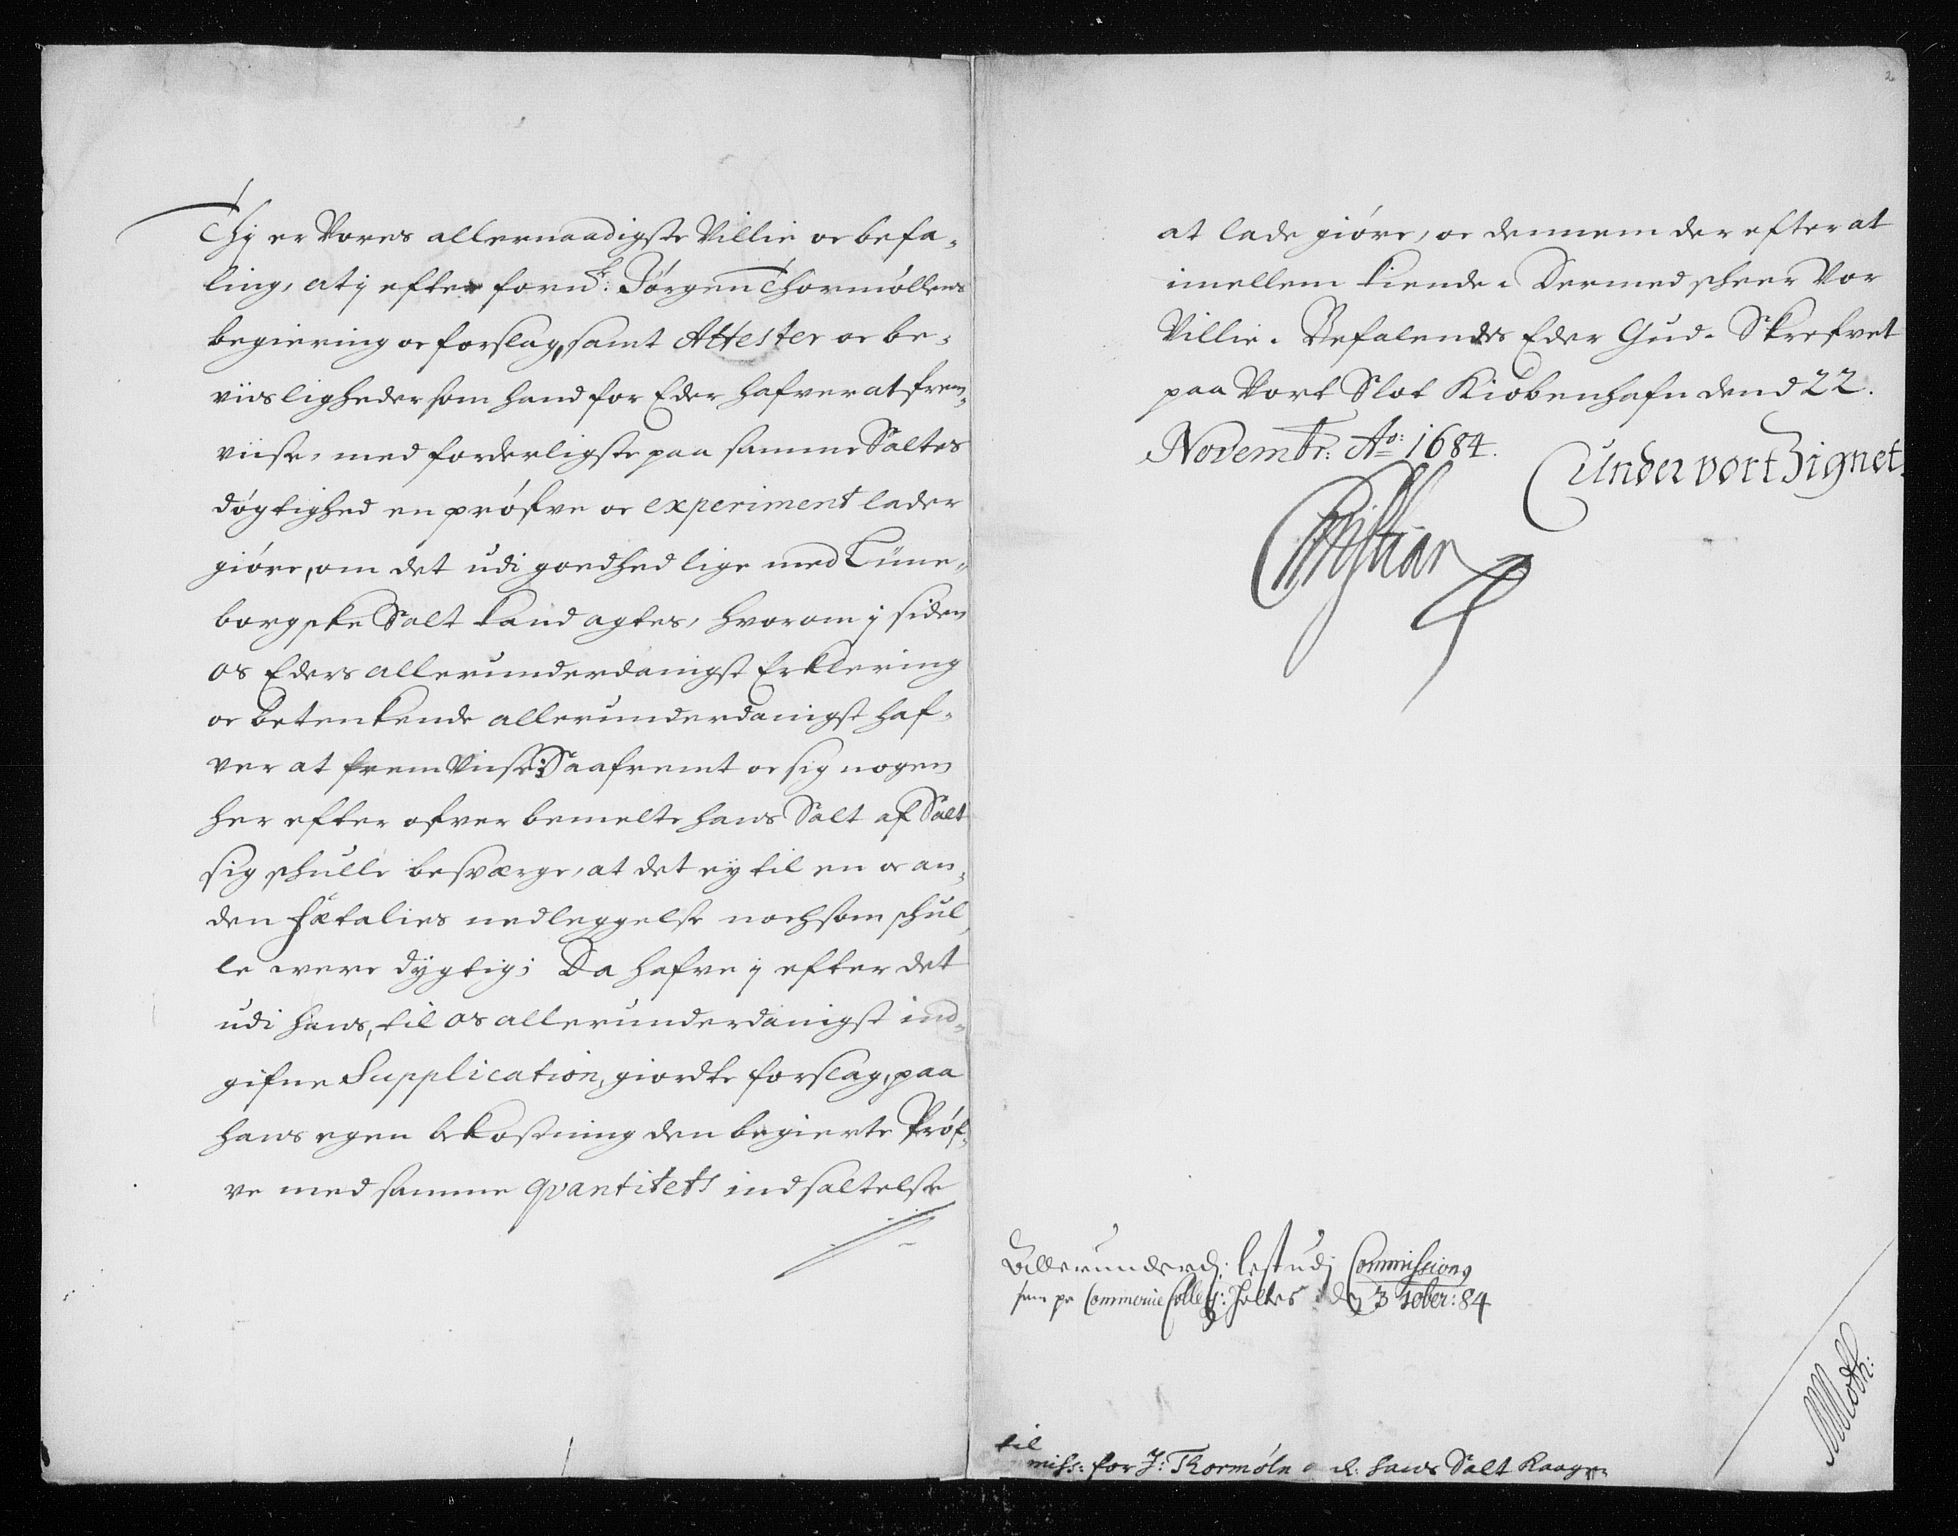 Thj er Vores allernaadigste Villie oc befa-
ling, at j efter fornd.te: Jørgen Thormøllens
begiering oc forslag, samt Attester oc be-
viisligheder som hand for Eder hafver at frem-
viise, med forderligste paa samme Saltes
døgtighed en prøfve oc experiment lader
giøre, om det udi goedhed lige med Lüne-
borgske Salt kand agtes, hvorom j siden
os Eders allerunderdanigst Erklering
oc betenkende allerunderdanigst haf-
ver at fremviise; Saafremt oc sig nogen
her efter ofver bemelte hans Salt af Salt
sig schulle besværge, at det ey til en oc an-
den Fætalies nedleggelse nochsom schul-
le were dygtig; Da hafve j efter det
udi hans, til os allerunderdanigst ind-
gifne Supplication, giordte forslag, paa
hans egen bekostning den begierte Prøf-
ve med samme qvantitets indsaltelse
at lade giøre, oc dennem der efter at
imellem kiende. Dermed scheer Vor
Villie. Befalendes Eder Gud. Skrefvet
paa Vort Slot Kiøbenhafn dend 22.
Novembr: Ao: 1684.
Under vort Zignet.
Christian
Allerunderd: lest udj Commission
som pa Commercie Colleg: holtes d 3 xber: 84
M Moth:
til
miss: for J: Thormøln hans Salt Kaagen